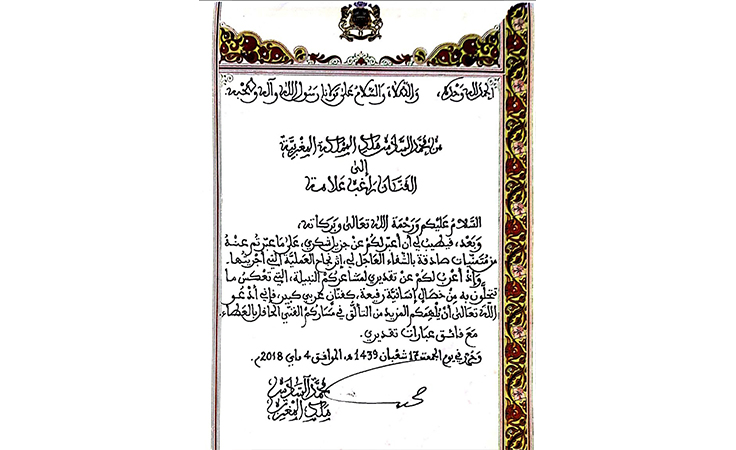 الحمد لله وحده، والصلاة والسلام على مولانا رسول الله وآله وصحبه
من محمد السادس ملك المملكة المغربية
إلى
الفنان راغب علامة
السَّلامُ عَليْكم وَرَحْمَة الله تعَالىٰ وبَركَاته،
وبَعْد، فيطيب لي أن أعبّر لكُمْ عَنْ جزيل شكري، عَلىٰ مَا عبّرتم عنْهُ
من مُتمنيَات صَادقة بالشفاء العَاجل لي، إثر نجاح العمليّة التي أجريتُها.
وَإذْ أعْرب لكُمْ عَنْ تقديري لمشاعركُمْ النبيلة، التي تعْكسُ مَا
تتحلَّون به مِنْ خصَال إنسَانيّة رفيعَة، كفنّان عَربي كبير، فإني أدْعُو
اللهَ تعَالىٰ أنْ يلْهمَكم المزيد من التألّق في مسَاركُمْ الفني الحَافل بالعَطاء.
مَعَ فائق عبَارات تقديري.
وحُرّر في يوم الجمعة 17 شعْبَان 1439 هـ، الموافق 4 ماي 2018م.
محمد السادس
ملك المغرب